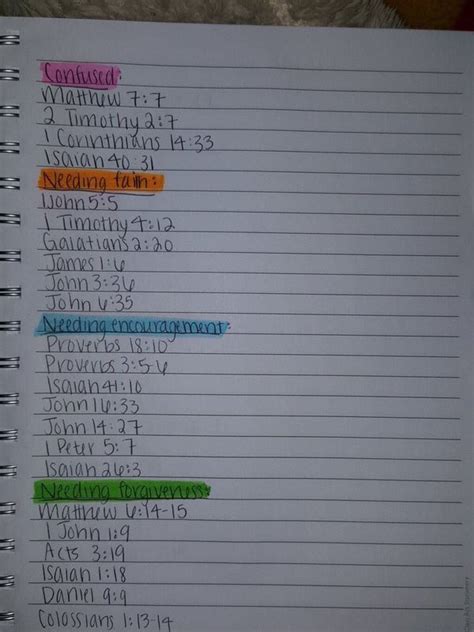 Confused:
Matthew 7:7
2 Timothy 2:7
1 Corinthians 14:33
Isaiah 40:31
Needing faith:
1John 5:5
1 Timothy 4:12
Galatians 2:20
James 1:6
John 3:36
John 6:35
Needing encouragement:
Proverbs 18:10
Proverbs 3:5-6
Isaiah 41:10
John 16:33
John 14:27
1 Peter 5:7
Isaiah 26:3
Needing forgiveness:
Matthew 6:14-15
1 John 1:9
Acts 3:19
Isaiah 1:18
Daniel 9:9
Colossians 1:13-14